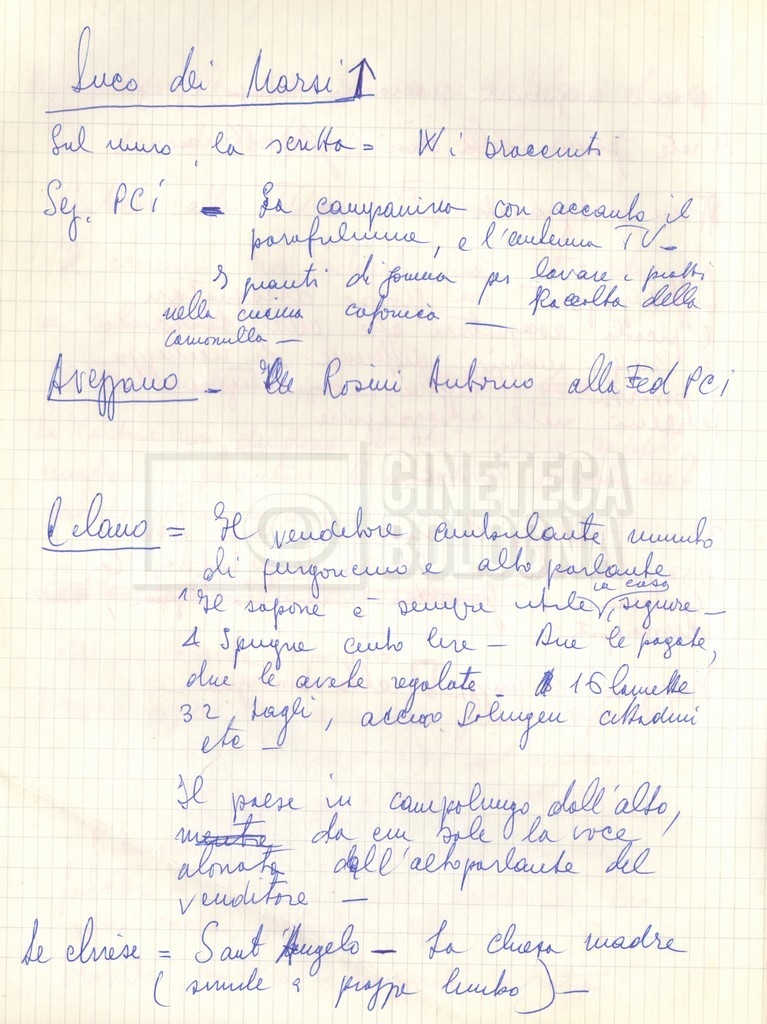 Luco dei Marsi ↑
Sul muro, la scritta = W i braccenti
Sez. PCi - La campanina con accanto il
parafulmine, e l'antenna TV -
I guanti di gomma per lavare i piatti
nella cucina cafonica — Raccolta della
camomilla —
Avezzano - Rosini Antonio alla Fed PCi
CINETECA
BOLOGNA
Celano = Il venditore ambulante munito
di furgoncino e alto parlante
in casa
Il sapone è sempre utile, signore -
4 spugne cento lire - Due le pagate,
due le avete regalate - 16 lamette
32 tagli, acciaio Solingen cittadini
etc -
Il paese in campolungo dall'alto,
mentre da cui sale la voce
alonata dall'altoparlante del
venditore —
Le chiese = Sant'Angelo - La chiesa madre
(simile a) —